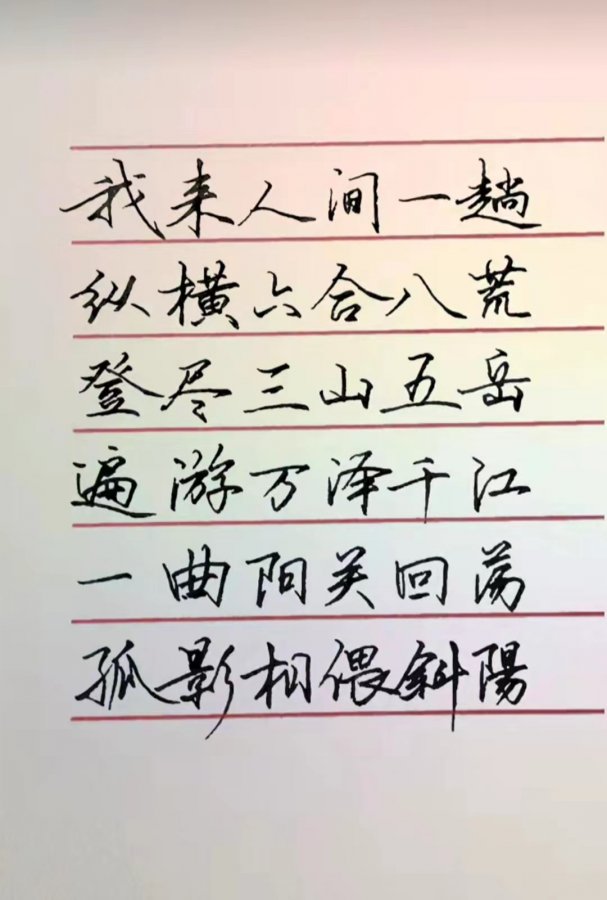 我来人间一趟
纵横六合八荒
登尽三山五岳
遍游万泽千江
一曲阳关回荡
孤影相偎斜陽